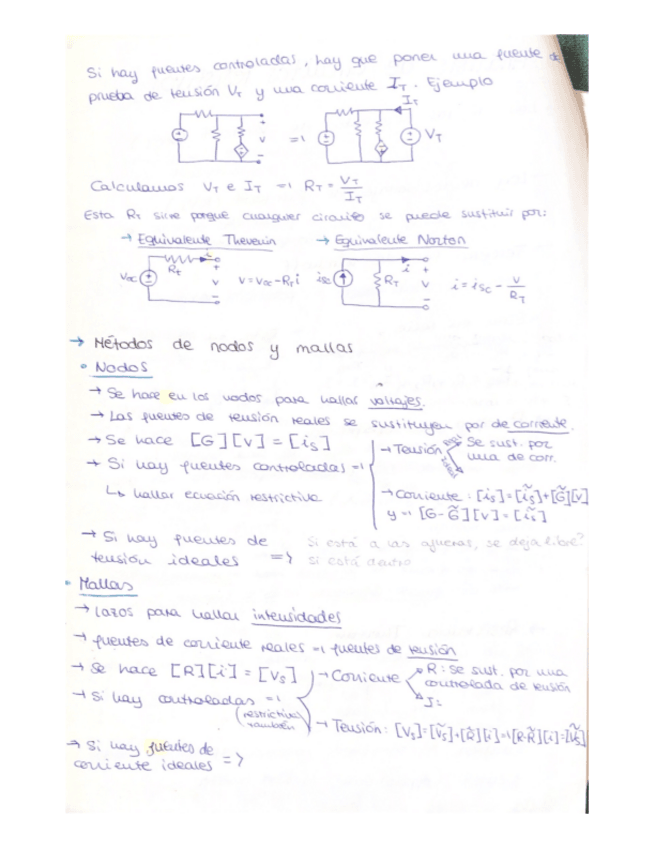 Si hay fuentes controladas, hay que poner una fuente de
prueba de tensión V_T y una corriente I_T. Ejemplo
I_T
v
=>
V_T
Calculamos V_T e I_T => R_T = V_T / I_T
Esta R_T sirve porque cualquier circuito se puede sustituir por:
→ Equivalente Thevenin → Equivalente Norton
R_T i + v - Voc v = Voc - R_T i
isc R_T i + v - i = isc - v / R_T
→ Métodos de nodos y mallas
• Nodos
→ Se hace en los nodos para hallar voltajes.
→ Las fuentes de tensión reales se sustituyen por de corriente.
→ Se hace [G][V] = [is]
→ Si hay fuentes controladas =>
↳ hallar ecuación restrictiva
→ Tensión
Se sust. por
una de corr.
→ Corriente: [is] = [ĩs] + [G̃][V]
y => [G - G̃][V] = [ĩs]
→ Si hay fuentes de
tensión ideales =>
Si está a las afueras, se deja libre?
si está dentro
• Mallas
→ Lazos para hallar intensidades
→ fuentes de corriente reales => fuentes de tensión
→ Se hace [R][i] = [Vs]
→ Si hay controladas =>
(restrictiva
también)
→ Corriente
R: Se sust. por una
controlada de tensión
I:
→ Tensión: [Vs] = [Ṽs] + [R̃][i] => [R - R̃][i] = [Ṽs]
→ Si hay fuentes de
corriente ideales =>